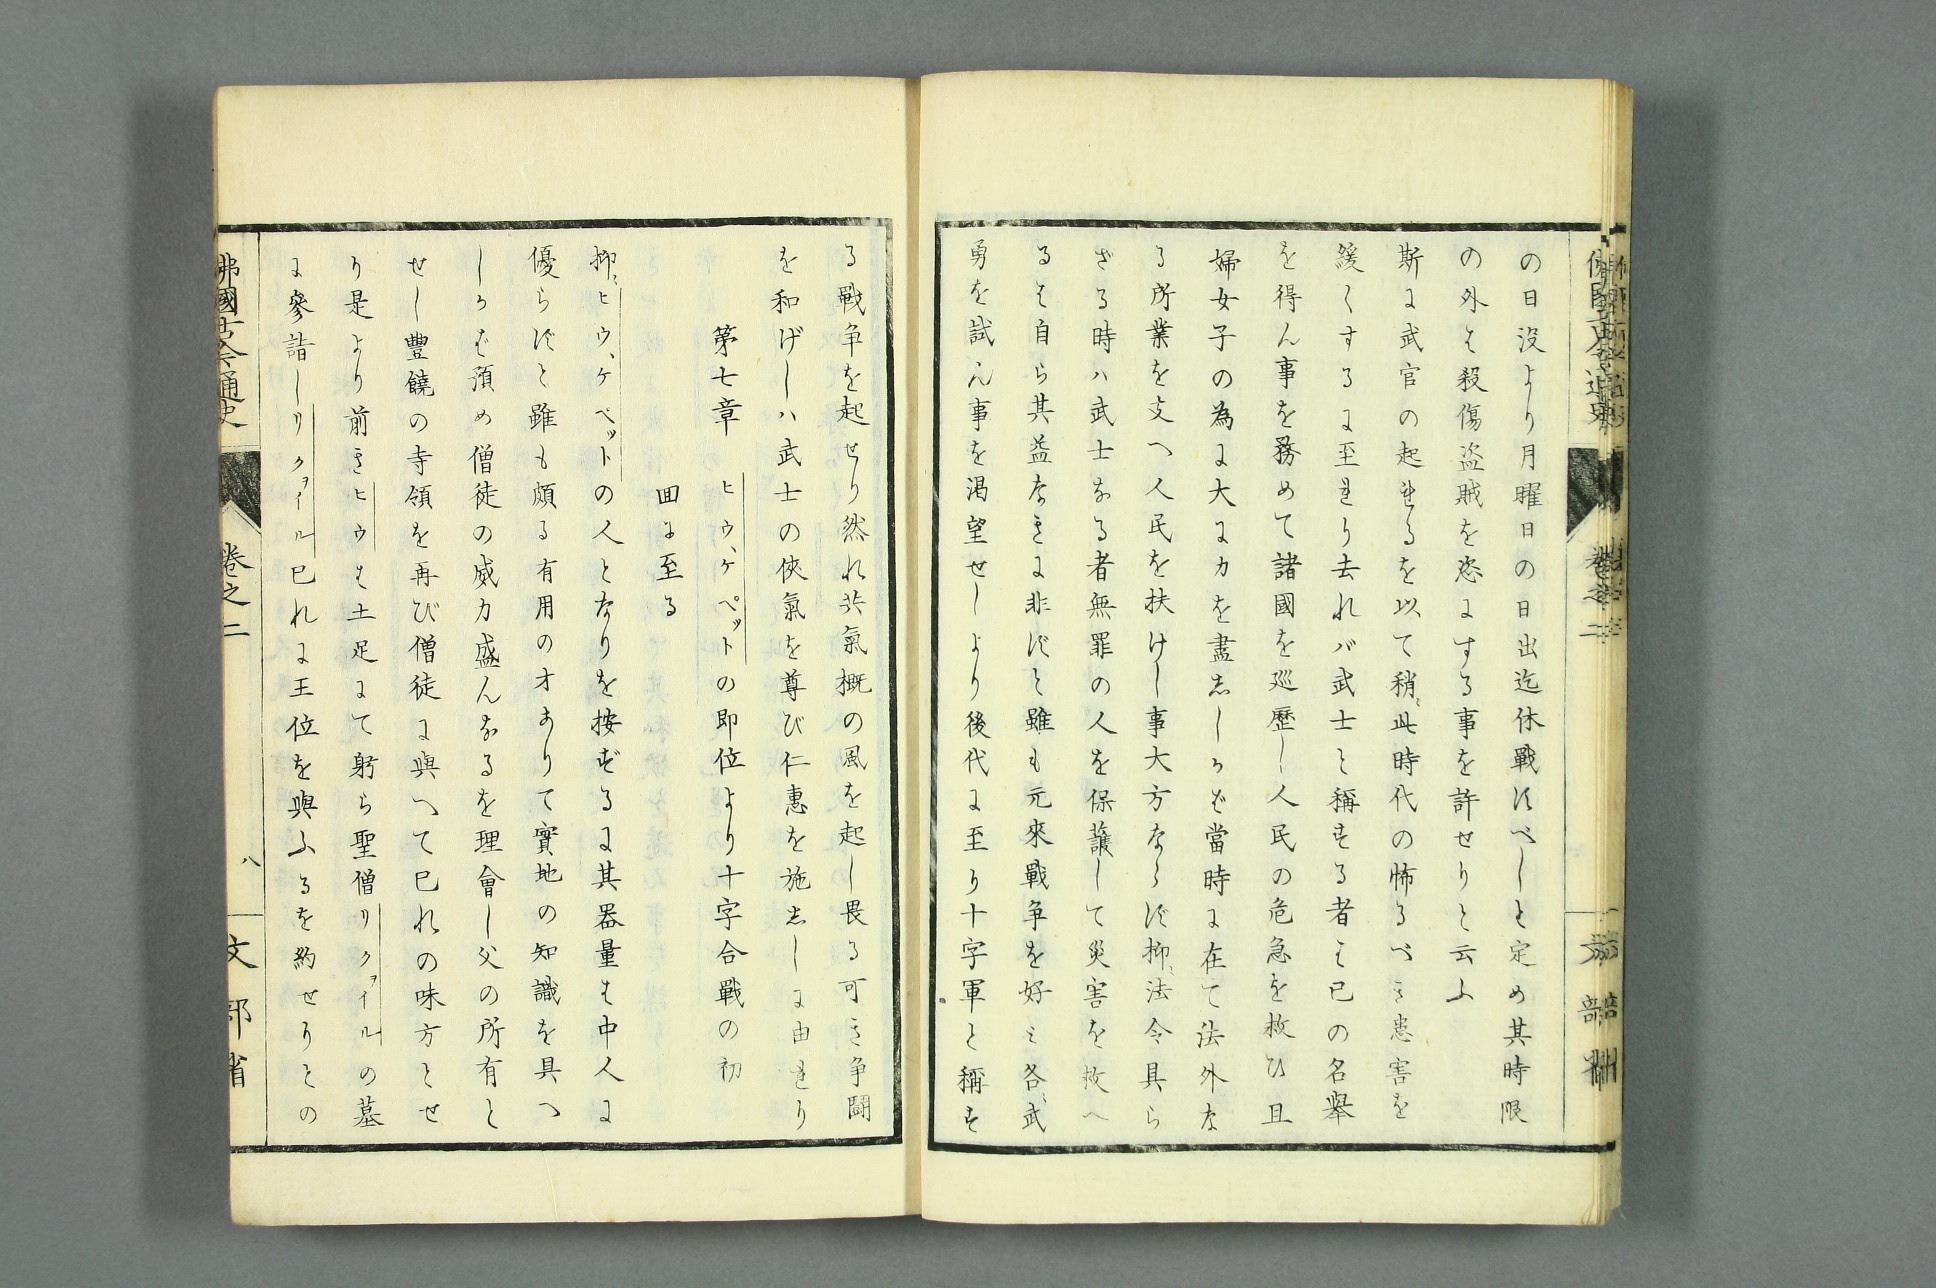 の日没より月曜日の日出迄休戰すべしと定め其時限
の外は殺傷盗賊を恣にする事を許せりと云ふ
斯に武官の起れるを以て稍〻此時代の怖るべき患害を
緩くするに至れり去れバ武士と稱する者は已の名擧
を得ん事を務めて諸國を巡歴し人民の危急を救ひ且
婦女子の為に大に力を盡ししかば當時に在て法外な
る所業を支へ人民を扶けし事大方ならず抑〻法令具ら
ざる時ハ武士なる者無罪の人を保護して災害を救へ
るは自ら其益なきに非ずと雖も元來戰争を好み各〻武
勇を試ん事を渇望せしより後代に至り十字軍と稱す
る戰争を起せり然れ共氣概の風を起し畏る可き争鬪
を和げしハ武士の俠氣を尊び仁惠を施ししに由れり
第七章　ヒウ、ケペットの即位より十字合戰の初
回に至る
抑〻ヒウ、ケペットの人となりを按ずるに其器量は中人に
優らずと雖も頗る有用の才ありて實地の知識を具へ
しかば預め僧徒の威力盛んなるを理會し父の所有と
せし豐饒の寺領を再び僧徒に與へて已れの味方とせ
り是より前きヒウは土足にて躬ら聖僧リクヮイルの墓
に參詣しリクヮイル已れに王位を與ふるを約せりとの
佛國古今通史
卷之二
八
文部省